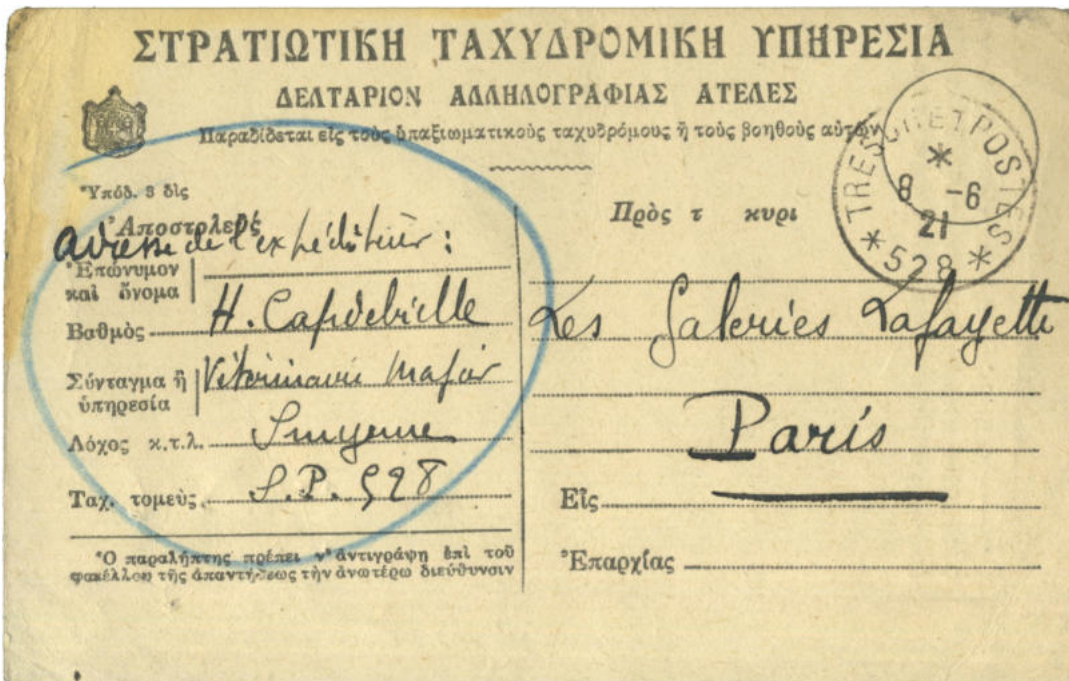 ΣΤΡΑΤΙΩΤΙΚΗ ΤΑΧΥΔΡΟΜΙΚΗ ΥΠΗΡΕΣΙΑ
ΔΕΛΤΑΡΙΟΝ ΑΛΛΗΛΟΓΡΑΦΙΑΣ ΑΤΕΛΕΣ
Παραδίδεται εἰς τοὺς ὑπαξιωματικοὺς ταχυδρόμους ἢ τοὺς βοηθοὺς αὐτῶν
TRESOR ET POSTES
* 528 *
*
8 -6
21
Ὑπόδ. 3 δὶς
Ἀποστολεύς
adresse de l'expéditeur :
Ἐπώνυμον
καὶ ὄνομα
Βαθμὸς H. Capdebielle
Σύνταγμα ἢ
ὑπηρεσία Vétérinaire Major
Λόχος κ.τ.λ. Smyrne
Ταχ. τομεὺς S.P. 528
Ὁ παραλήπτης πρέπει ν' ἀντιγράψῃ ἐπὶ τοῦ
φακέλλου τῆς ἀπαντήσεως τὴν ἀνωτέρω διεύθυνσιν
Πρὸς τ κυρι
Les Galeries Lafayette
Paris
Εἰς
Ἐπαρχίας